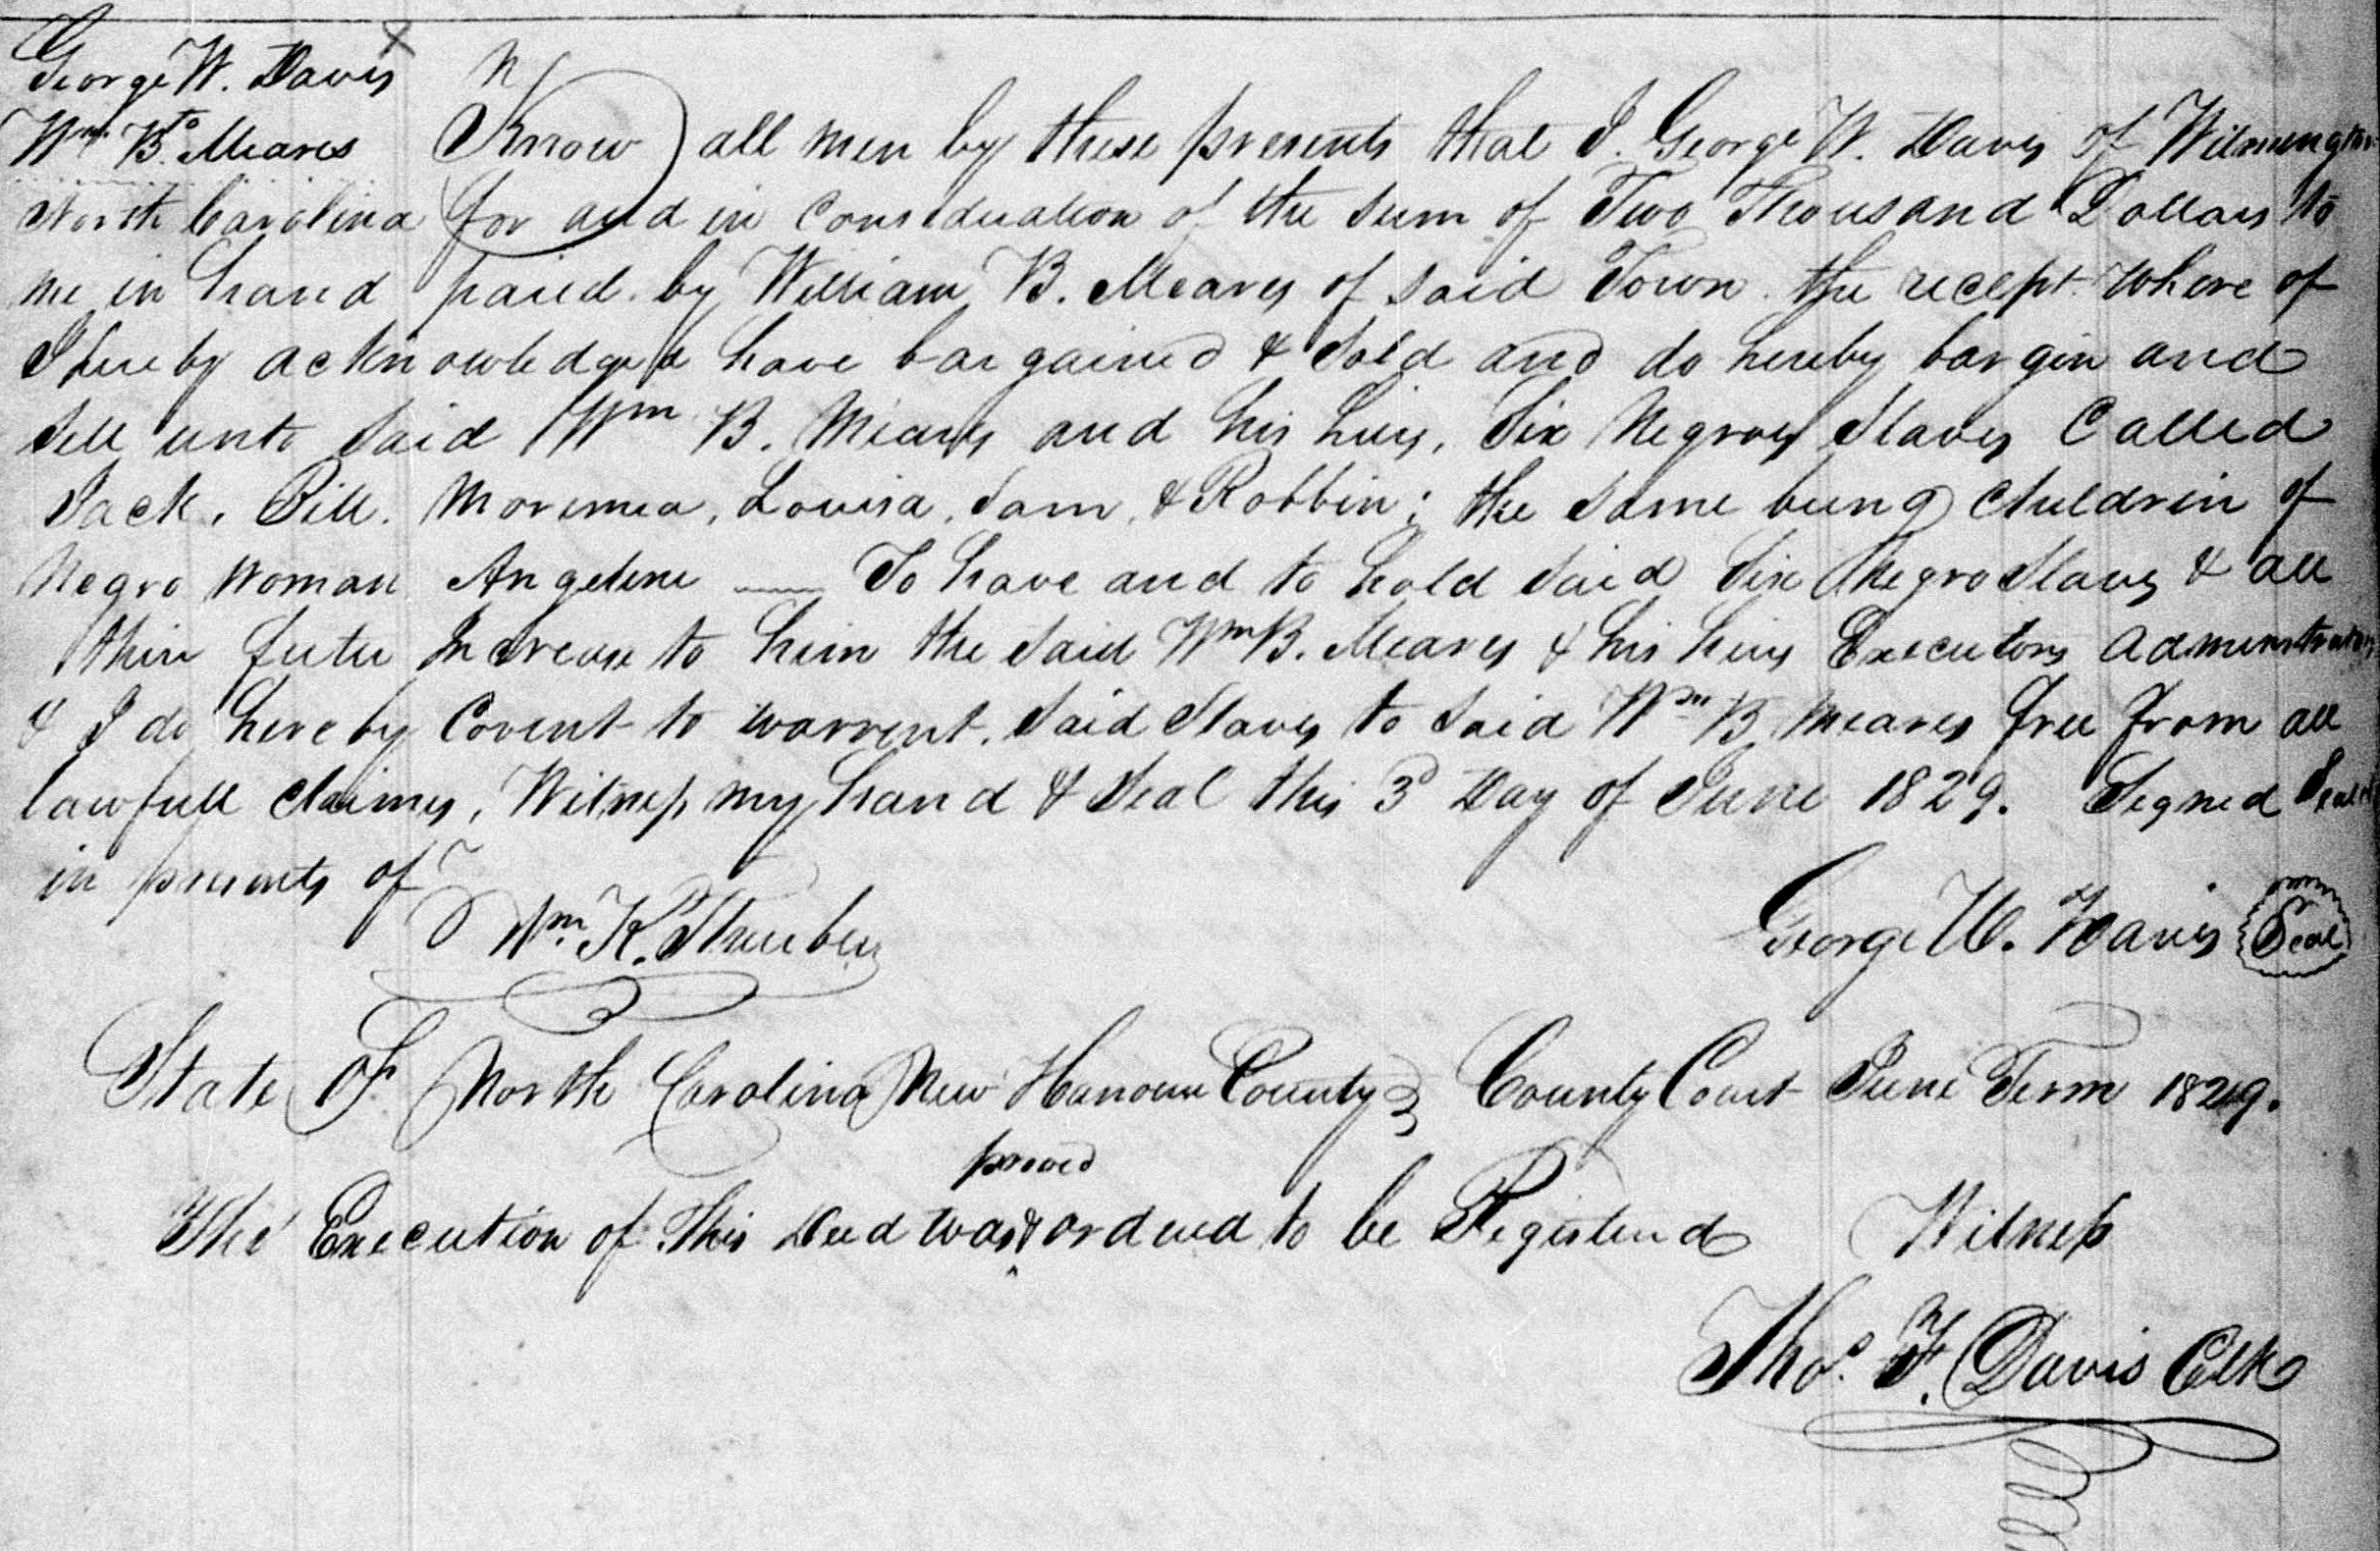 George W. Davis
to
Wm B. Meares
Know all men by these presents that I George W. Davis of Wilmington
North Carolina for and in Consideration of the sum of Two Thousand Dollars to
me in hand paid by William B. Meares of said Town the recept where of
I hereby acknowledged have bargained & sold and do hereby bargin and
sell unto said Wm B. Meares and his heirs, Six Negroes Slaves Called
Jack, Bill, Moremea, Louisa, Sam, & Robbin; the same being Children of
Negro Woman Angeline — To have and to hold said Six Negro Slaves & all
their futer Increase to him the said Wm B. Meares & his heirs Executors Administrators
& I do hereby Covent to warrent said Slaves to said Wm B. Meares free from all
lawfull claimes, Witness my hand & Seal this 3d Day of June 1829. Signed Seald
in presents of
Wm K.
George W. Davis Seal
State of North Carolina New Hanover County County Court June Term 1829.
proved
The Execution of this Deed was & ordered to be Registered Witness
Thos. F. Davis Clk